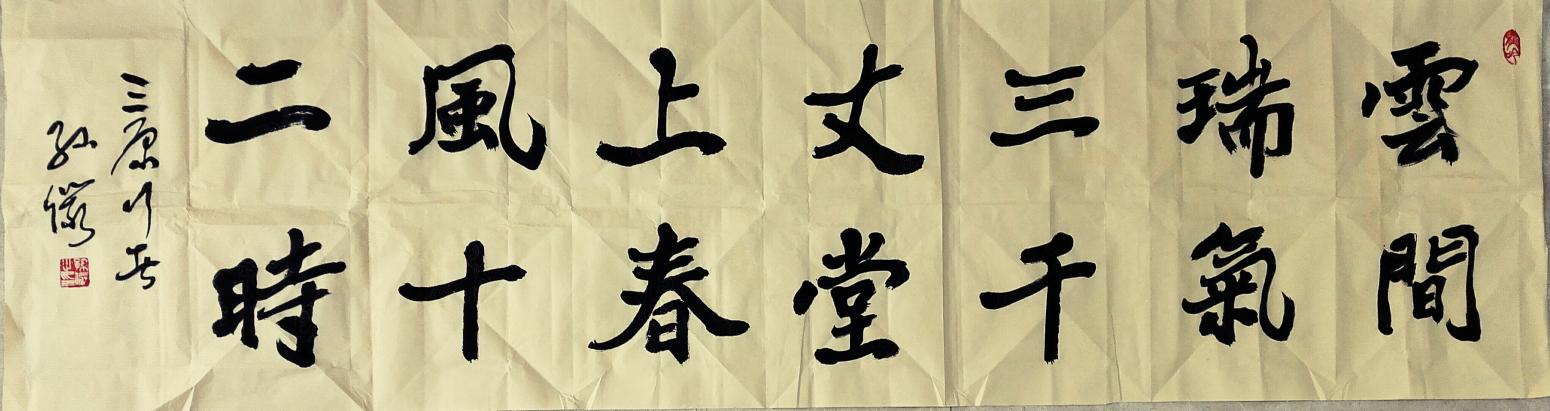 雲間
瑞氣
三千
丈堂
上春
風十
二時
三原
孙